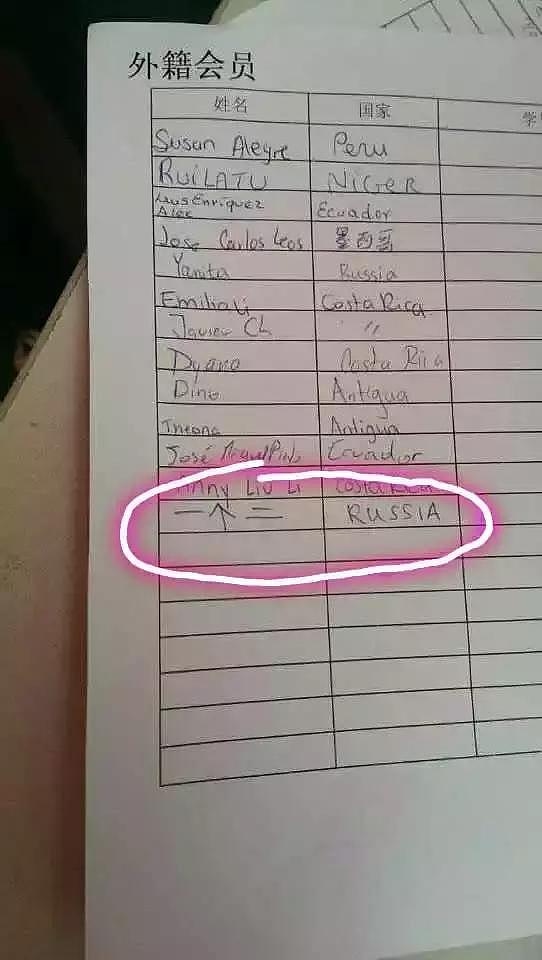 外籍会员
姓名 国家 学
Susan Alegre Peru
RUILATU NiGER
Luis Enriquez Alex Ecuador
Jose Carlos Leos 墨西哥
Yanita Russia
Emilia Li Costa Rica
Javier Ch "
Dyana Costa Rica
Dino Antigua
Antigua
José Ecuador
LIU Li Costa Rica
一个二 RUSSIA